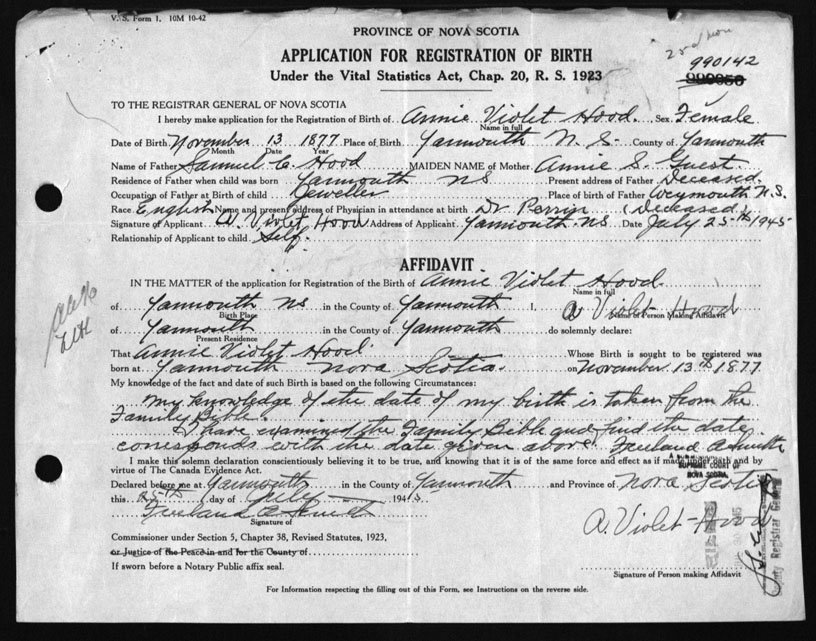 V. S. Form 1. 10M 10-42
PROVINCE OF NOVA SCOTIA
APPLICATION FOR REGISTRATION OF BIRTH
Under the Vital Statistics Act, Chap. 20, R. S. 1923
990142
TO THE REGISTRAR GENERAL OF NOVA SCOTIA
I hereby make application for the Registration of Birth of Annie Violet Hood. Sex Female
Name in full
Date of Birth November 13 1877 Place of Birth Yarmouth N. S. County of Yarmouth
Month Date Year
Name of Father Samuel C. Hood MAIDEN NAME of Mother Annie S. Guest
Residence of Father when child was born Yarmouth NS Present address of Father Deceased
Occupation of Father at Birth of child Jeweller Place of birth of Father Weymouth N.S.
Race English Name and present address of Physician in attendance at birth Dr. Perrin (Deceased)
Signature of Applicant A. Violet Hood Address of Applicant Yarmouth NS Date July 25th 1945
Relationship of Applicant to child Self.
AFFIDAVIT
IN THE MATTER of the application for Registration of the Birth of Annie Violet Hood
Name in full
of Yarmouth NS in the County of Yarmouth I, A Violet Hood
Birth Place Name of Person Making Affidavit
of Yarmouth in the County of Yarmouth do solemnly declare:
Present Residence
That Annie Violet Hood Whose Birth is sought to be registered was
born at Yarmouth Nova Scotia. on November 13th 1877
My knowledge of the fact and date of such Birth is based on the following Circumstances:
My knowledge of the date of my birth is taken from the
Family Bible
I have examined the Family Bible and find the date
corresponds with the date given above Freeland A Smith
I make this solemn declaration conscientiously believing it to be true, and knowing that it is of the same force and effect as if made under oath and by
virtue of The Canada Evidence Act.
SUPREME COURT OF
NOVA SCOTIA
Declared before me at Yarmouth in the County of Yarmouth and Province of Nova Scotia
this 25th day of July 1945
Freeland A Smith
Signature of
A. Violet Hood
Commissioner under Section 5, Chapter 38, Revised Statutes, 1923,
or Justice of the Peace in and for the County of
If sworn before a Notary Public affix seal.
Signature of Person making Affidavit
For Information respecting the filling out of this Form, see Instructions on the reverse side.